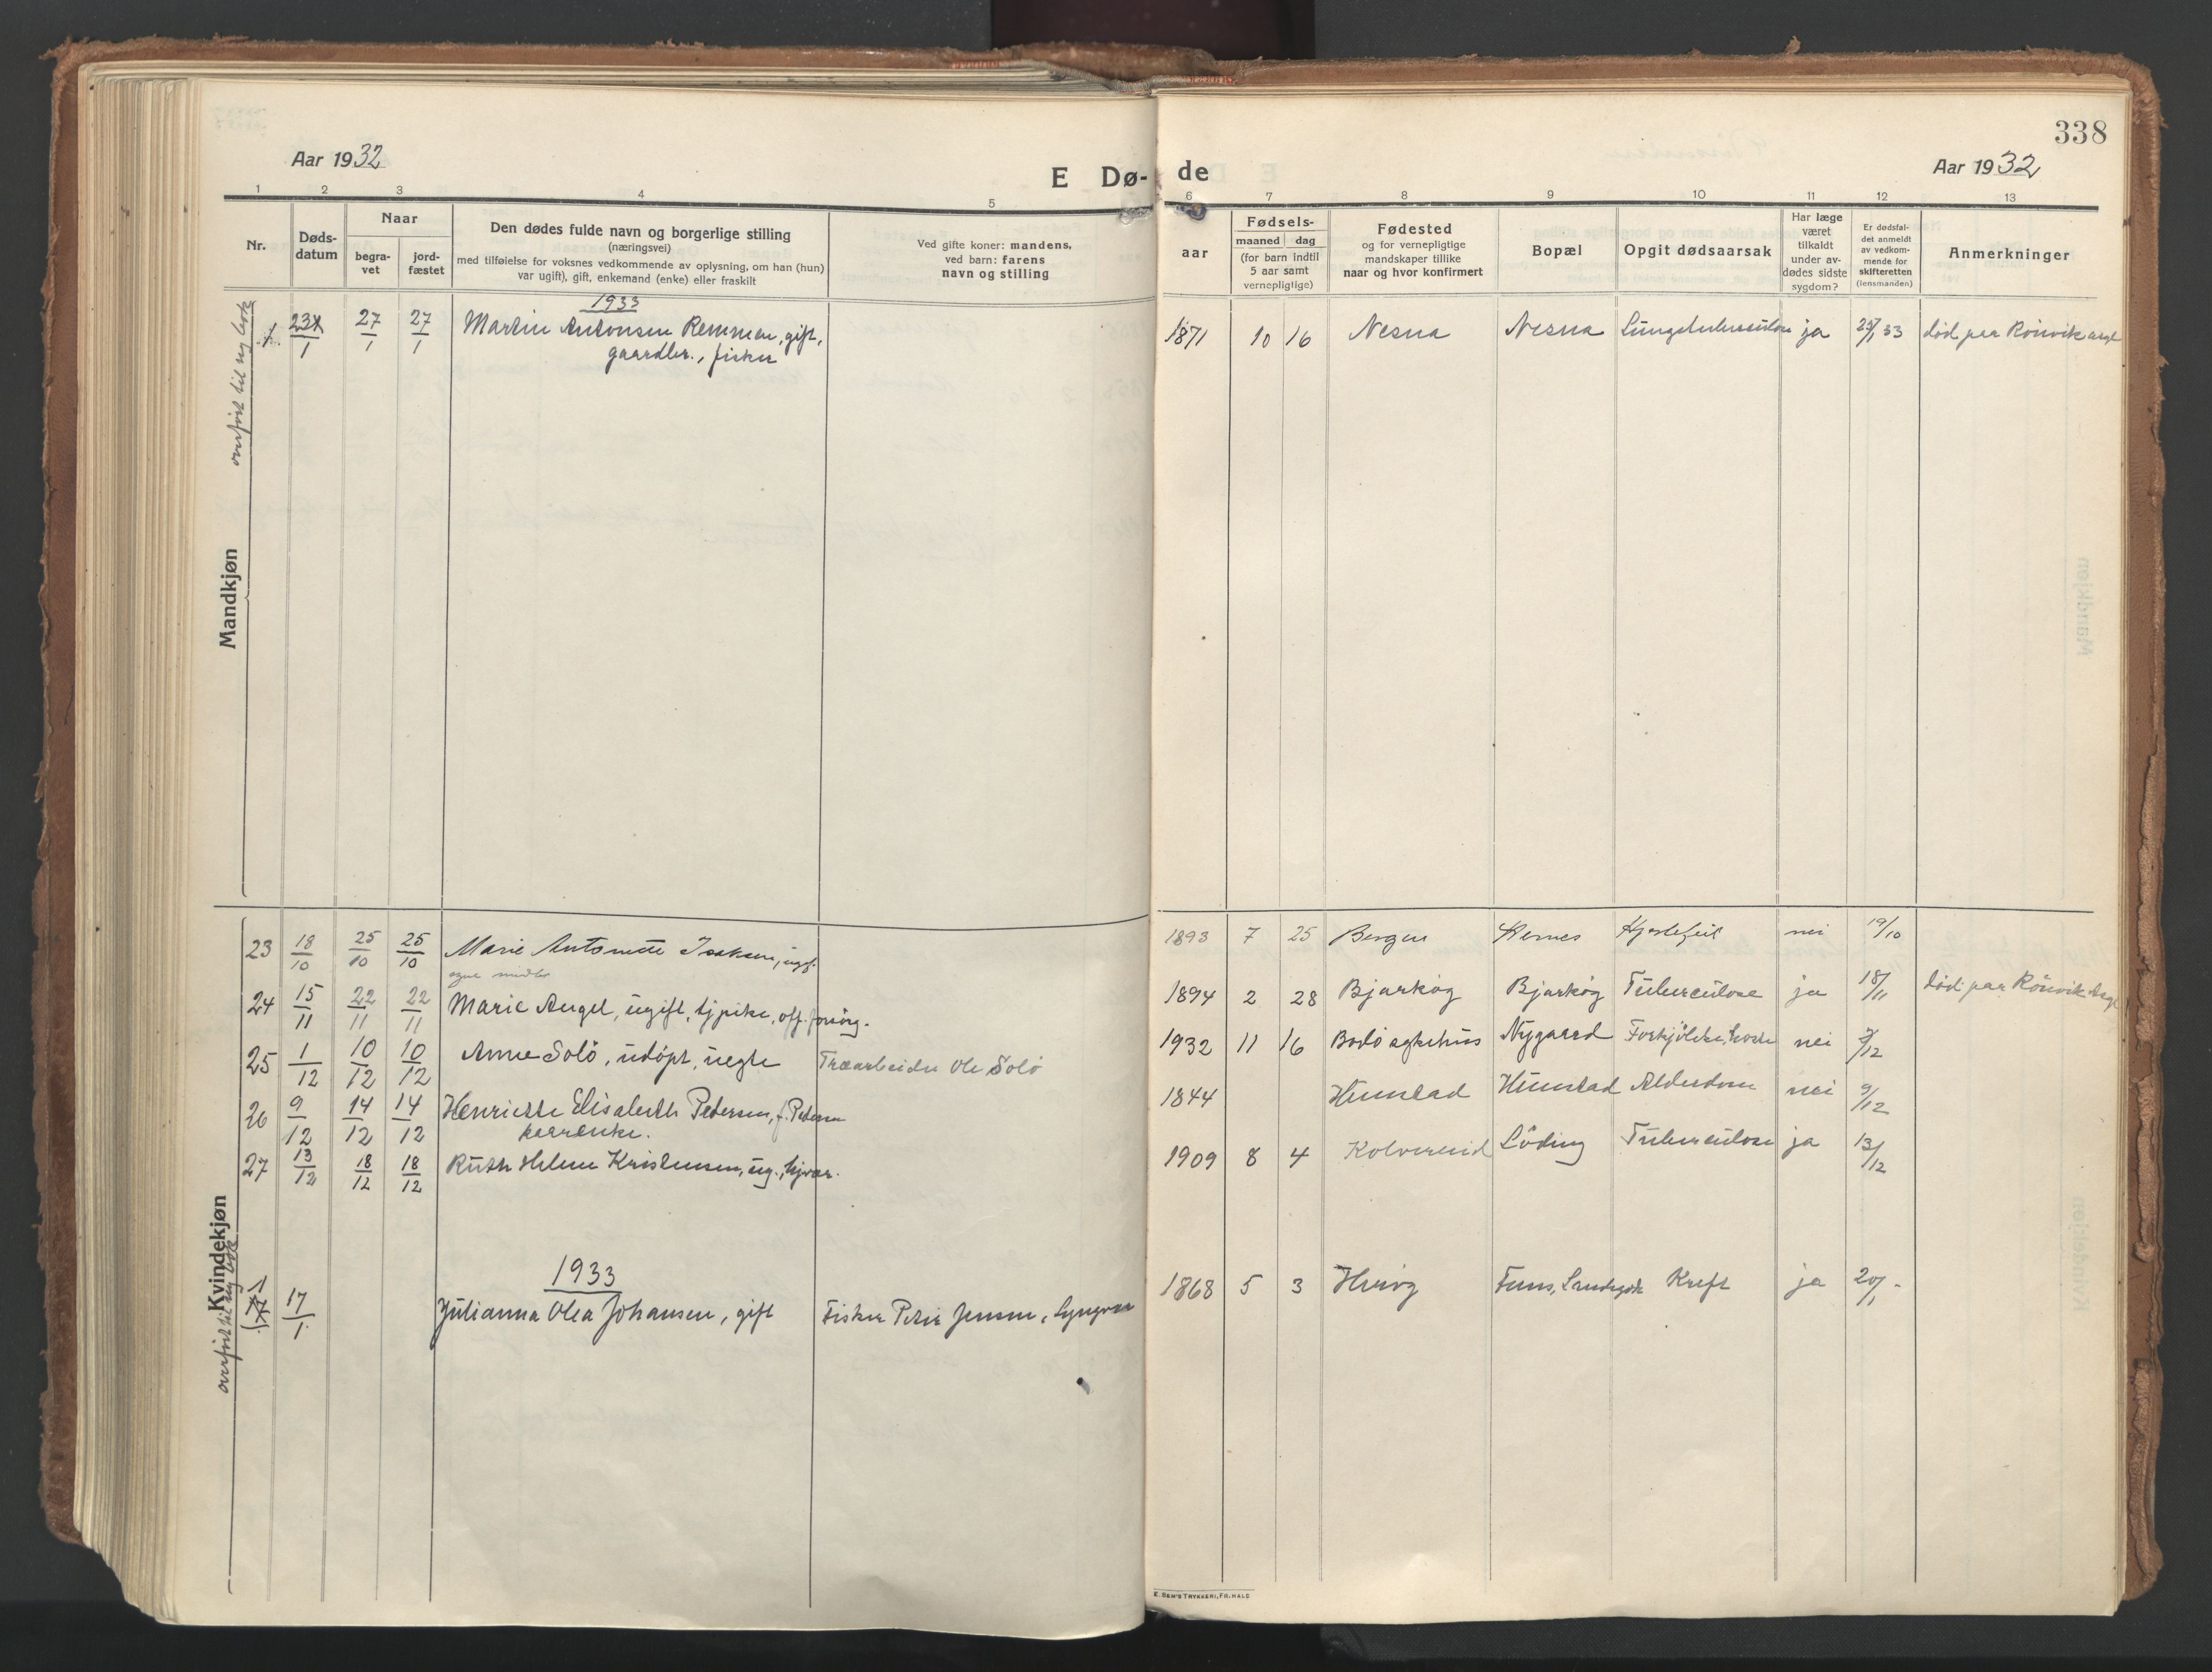 338
Aar 1932
E Dø-
de
Aar 1932
1 2 3 4 5 6 7 8 9 10 11 12 13
Nr.
Døds-
datum
Naar
begra-
vet
jord-
fæstet
Den dødes fulde navn og borgerlige stilling
(næringsvei)
med tilføielse for voksnes vedkommende av oplysning, om han (hun)
var ugift), gift, enkemand (enke) eller fraskilt
Ved gifte koner: mandens,
ved barn: farens
navn og stilling
aar
Fødsels-
maaned dag
(for barn indtil
5 aar samt
vernepligtige)
Fødested
og for vernepligtige
mandskaper tillike
naar og hvor konfirmert
Bopæl
Opgit dødsaarsak
Har læge
været
tilkaldt
under av-
dødes sidste
sygdom?
Er dødsfal-
det anmeldt
av vedkom-
mende for
skifteretten
(lensmanden)
Anmerkninger
Mandkjøn
overført til ny bok
1933
1. 23/1 27/1 27/1 Martin Antonsen Remmen, gift, 1871 10 16 Nesna Nesna Lungetuberculose ja 25/1 33 død paa Rönvik asyl
gaardbr., fisker
Kvindekjøn
overført til ny bok
23 18/10 25/10 25/10 Marie Antonette Isaksen, ugift. 1893 7 25 Bergen Hernes Hjertefeil nei 19/10
egne midler
24 15/11 22/11 22/11 Marie Angel, ugift, tj pike, off. forsörg. 1894 2 28 Bjarköy Bjarköy Tuberculose ja 18/11 död paa Rönvik Asyl
25 1/12 10/12 10/12 Anne Solö, udöpt, uegte Træarbeider Ole Solö 1932 11 16 Bodö sykehus Nygaard Forkjölelse, hoste nei 3/12
26 9/12 14/12 14/12 Henriette Elisabeth Petersen, f. Petersen 1844 Hunstad Hunstad Alderdom nei 9/12
kaarenke.
27 13/12 18/12 18/12 Ruth Helene Kristensen, ug., hjvær. 1909 8 4 Kolvereid Löding Tuberculose ja 13/12
1933
1 17/1 Julianna Olea Johansen, gift Fisker Peder Jensen, Lyngvær 1868 5 3 Heröy Funs, Landegode Kreft ja 20/1 -
E. SEM'S TRYKKERI, FR.HALD